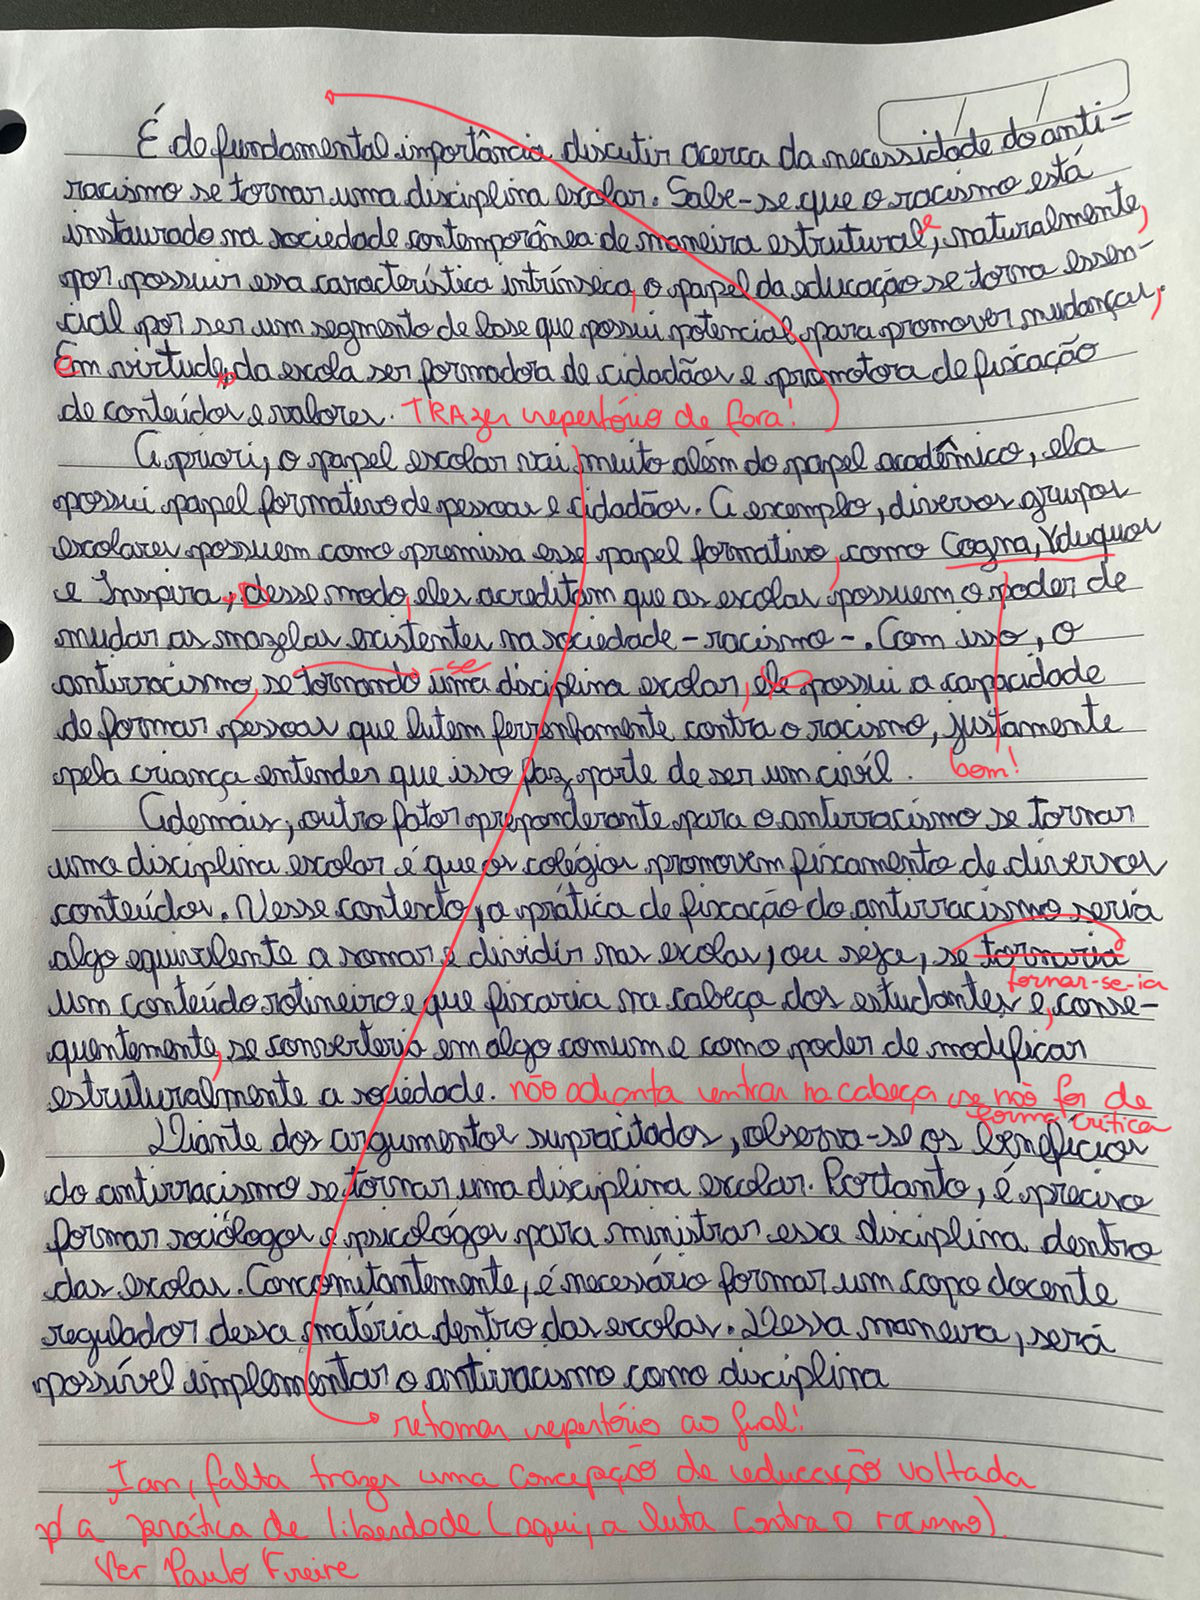 É de fundamental importância discutir acerca da necessidade do anti-
racismo se tornar uma disciplina escolar. Sabe-se que o racismo está
instaurado na sociedade contemporânea de maneira estrutural e, naturalmente,
por possuir essa característica intrínseca, o papel da educação se torna essen-
cial por ser um segmento de base que possui potencial para promover mudanças,
Em virtude da escola ser formadora de cidadãos e promotora de fixação
de conteúdos e valores. TRAzer repertório de fora!
A priori, o papel escolar vai muito além do papel acadêmico, ela
possui papel formativo de pessoas e cidadãos. A exemplo, diversos grupos
escolares possuem como premissa esse papel formativo, como Cogna, Yduqas
e Inspira, desse modo, eles acreditam que as escolas possuem o poder de
mudar as mazelas existentes na sociedade - racismo -. Com isso, o
antirracismo, se tornando -se uma disciplina escolar, ele possui a capacidade
de formar pessoas que lutem ferrenhamente contra o racismo, justamente
pela criança entender que isso faz parte de ser um civil. bom!
Ademais, outro fator preponderante para o antirracismo se tornar
uma disciplina escolar é que os colégios promovem fixamento de diversos
conteúdos. Nesse contexto, a prática de fixação do antirracismo seria
algo equivalente a somar e dividir nas escolas, ou seja, se tornaria
tornar-se-ia
um conteúdo rotineiro e que fixaria na cabeça dos estudantes e, conse-
quentemente, se converteria em algo comum e como poder de modificar
estruturalmente a sociedade. não adianta entrar na cabeça se não for de
forma crítica
Diante dos argumentos supracitados, observa-se os benefícios
do antirracismo se tornar uma disciplina escolar. Portanto, é preciso
formar sociólogos e psicólogos para ministrar essa disciplina dentro
das escolas. Concomitantemente, é necessário formar um copo docente
regulador dessa matéria dentro das escolas. Dessa maneira, será
possível implementar o antirracismo como disciplina
retomar repertório ao final!
Iam, falta trazer uma concepção de educação voltada
p/ a prática de liberdade (aqui, a luta contra o racismo).
Ver Paulo Freire